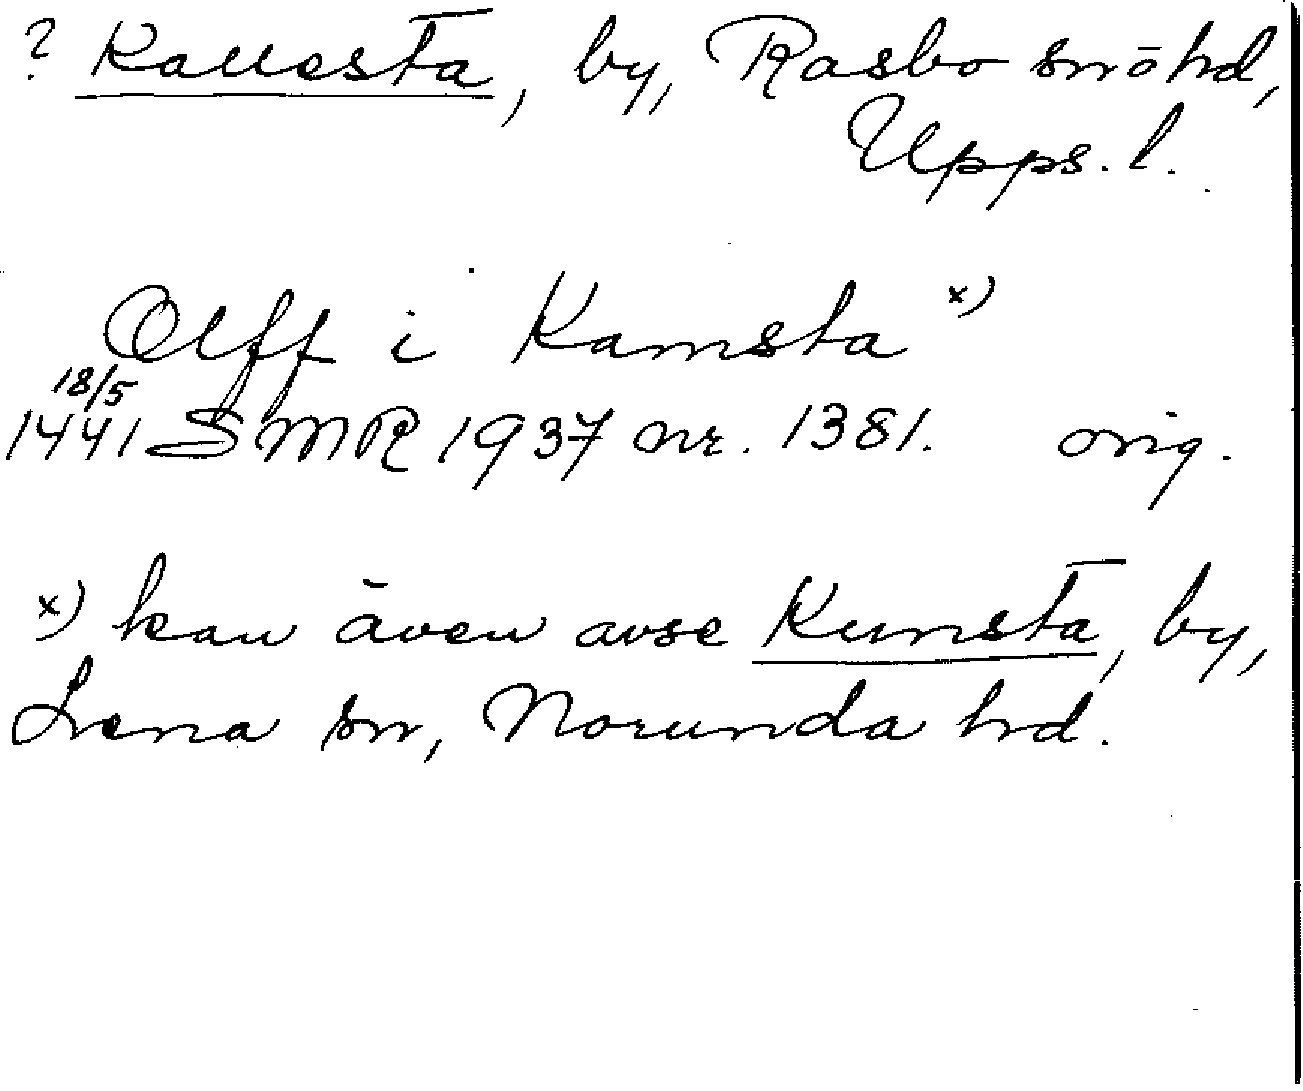 ? by, Rasbo sn o hd,
Upps. l.
Olff i Kamsta x)
18/5
1441 SMR 1937 nr. 1381. orig.
x) kan även avse Kumsta, by,
Lena sn, Norunda hd.